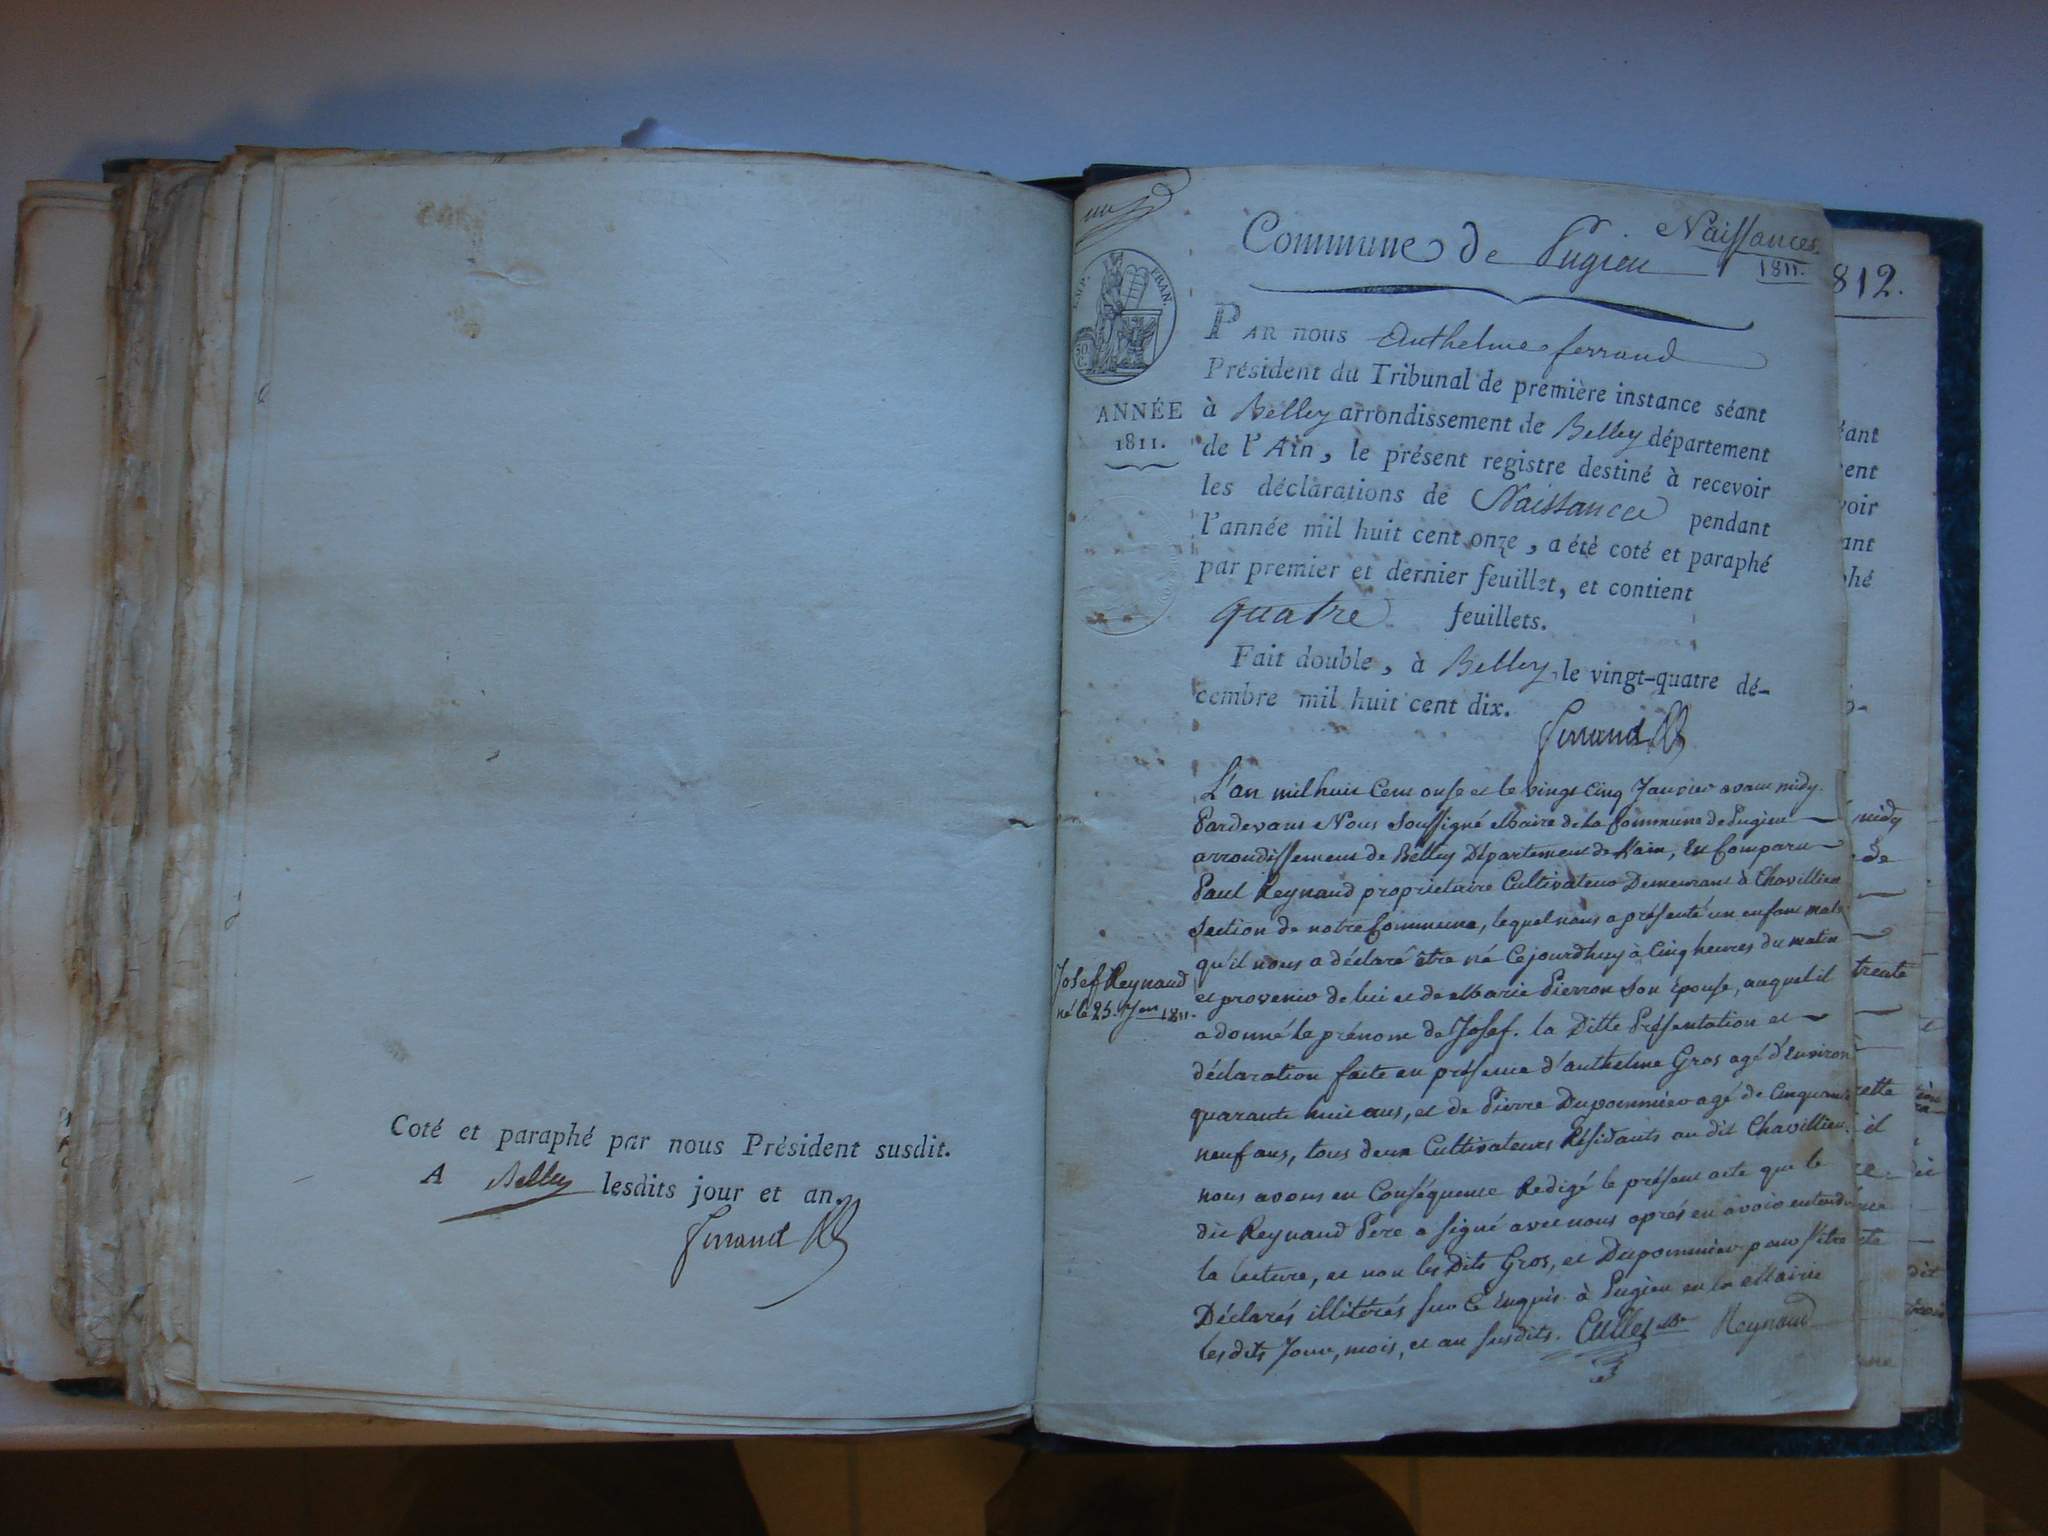 Coté et paraphé par nous Président susdit.
A Belley lesdits jour et an.
Ferrand
Naissances
1811.
Commune de Pugieu
EMP. FRAN.
50 C.
ANNÉE
1811.
PAR nous Anthelme ferrand
Président du Tribunal de première instance séant
à Belley arrondissement de Belley département
de l'Ain, le présent registre destiné à recevoir
les déclarations de Naissance pendant
l'année mil huit cent onze, a été coté et paraphé
par premier et dernier feuillet, et contient
quatre feuillets.
Fait double, à Belley, le vingt-quatre dé-
cembre mil huit cent dix.
Ferrand
L'an mil huit Cent onse et le vingt Cinq Janvier avant midy
Pardevant Nous Soussigné Maire de la Commune de Pugieu
arrondissement de Belley Département de l'ain, Est Comparu
Paul Reynaud proprietaire Cultivateur Demeurant à Chavillieu
Section de notre Commune, lequel nous a présenté un enfant male
qu'il nous a déclaré être né Cejourdhuy à Cinq heures du matin
et provenir de lui et de Marie Pierron Son Épouse, auquel il
a donné le prénom de Josef. la Ditte Présentation et
déclaration faite en présence d'anthelme Gros agé d'Environ
quarante huit ans, et de Pierre Dupommier agé de Cinquante
neuf ans, tous deux Cultivateurs Résidants au dit Chavillieu.
nous avons en Conséquence Redigé le présent acte que le
dit Reynaud Pere a signé avec nous aprés en avoir entendu
la lecture, et non les Dits Gros, et Dupommier pour s'être
Déclarés illiterés sur Ce enquis. à Pugieu en la Mairie
lesdits Jour, mois, et an susdits. Cullet Mre Reynaud
Josef Reynaud
né le 25. Jer 1811.
812.